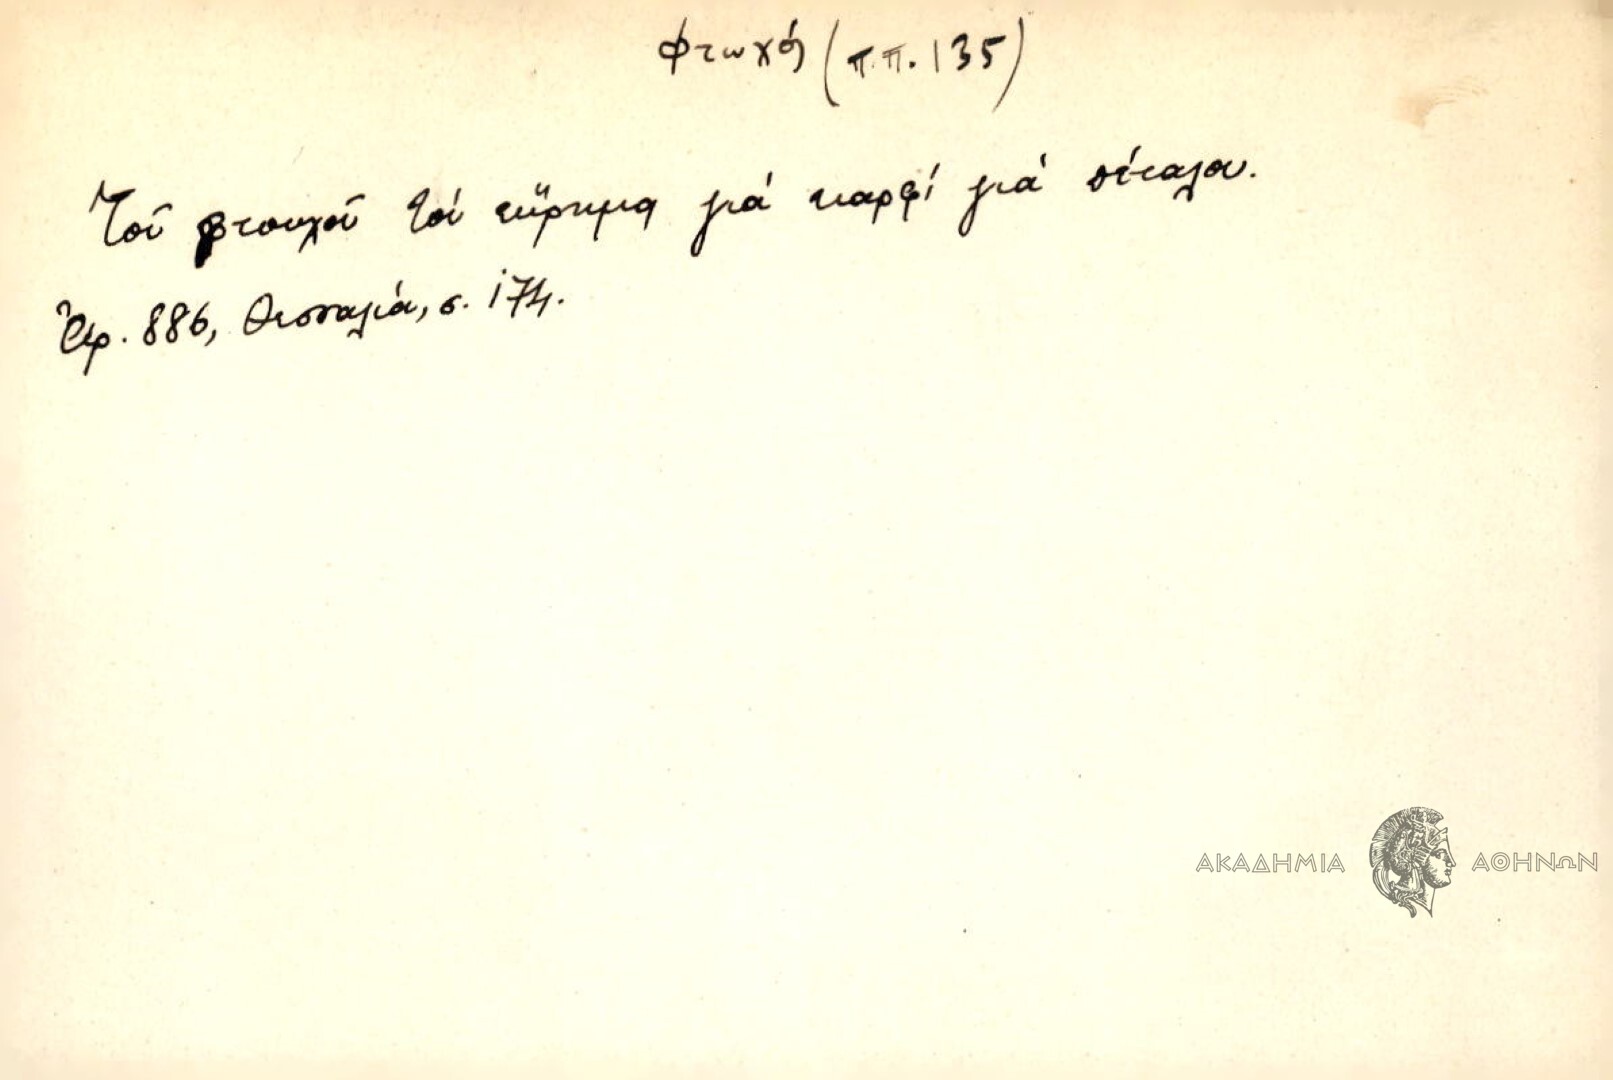 φτωχός (π.π. 135)
Τοῦ φτουχοῦ τοὺ εὕρημα γιά καρφί γιά πέταλου.
Ἀρ. 886, Θεσσαλία, σ. 174.
ΑΚΑΔΗΜΙΑ ΑΘΗΝΩΝ